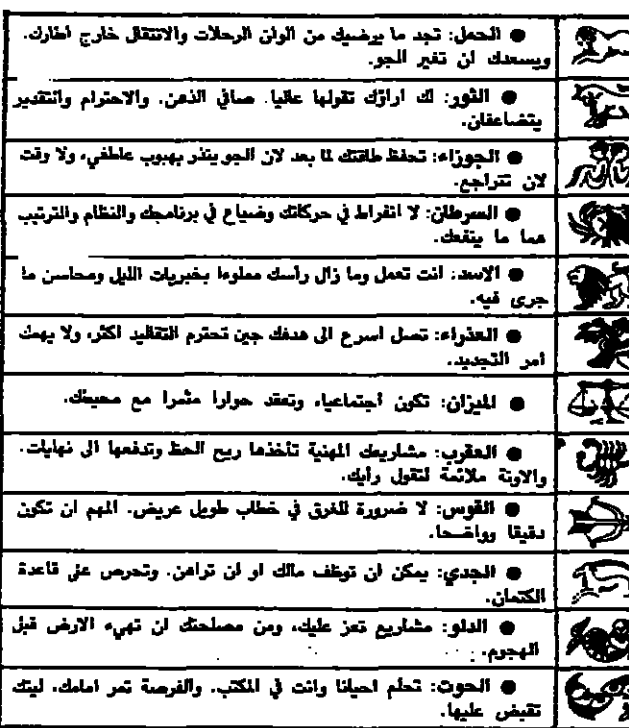 ● الحمل: تجد ما يرضيك من الوان الرحلات والانتقال خارج اطارك.
ويسعدك ان تغير الجو.
● الثور: لك اراؤك تقولها عاليا. صافي الذهن. والاحترام والتقدير
يتضاعفان.
● الجوزاء: تحفظ طاقتك لما بعد لان الجو ينذر بهبوب عاطفي، ولا وقت
لان تتراجع.
● السرطان: لا انفراط في حركاتك وضياع في برنامجك والنظام والترتيب
هما ما ينفعك.
● الاسد: انت تعمل وما زال رأسك مملوءا بخبريات الليل ومحاسن ما
جرى فيه.
● العذراء: تصل اسرع الى هدفك حين تحترم التقاليد اكثر، ولا يهمك
امر التجديد.
● الميزان: تكون اجتماعيا، وتعقد حوارا مثمرا مع محيطك.
● العقرب: مشاريعك المهنية تأخذها ريح الحظ وتدفعها الى نهايات.
والاونة ملائمة لتقول رأيك.
● القوس: لا ضرورة للغرق في خطاب طويل عريض. المهم ان تكون
دقيقا وواضحا.
● الجدي: يمكن ان توظف مالك او ان تراهن. وتحرص على قاعدة
الكتمان.
● الدلو: مشاريع تعز عليك، ومن مصلحتك ان تهيء الارض قبل
الهجوم.
● الحوت: تحلم احيانا وانت في المكتب. والفرصة تمر امامك. ليتك
تقبض عليها.